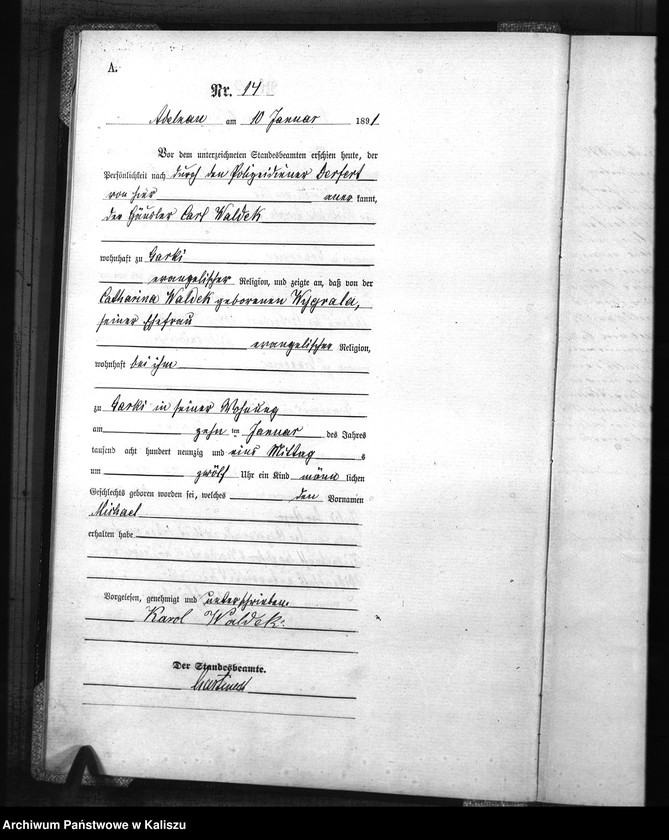 A.
Nr. 14
Adelnau am 10 Januar 1891
Vor dem unterzeichneten Standesbeamten erschien heute, der
Persönlichkeit nach durch den Polizeidiener
von hier aner kannt,
der Häusler Carl Waldek
wohnhaft zu Garki
evangelischer Religion, und zeigte an, daß von der
Catharina Waldek geborenen Wygrala,
seiner Ehefrau
evangelischer Religion,
wohnhaft bei ihm
zu Garki in seiner Wohnung
am zehn ten Januar des Jahres
tausend acht hundert neunzig und eins Mittag s
um zwölf Uhr ein Kind männ lichen
Geschlechts geboren worden sei, welches den Vornamen
Michael
erhalten habe
Vorgelesen, genehmigt und unterschrieben.
Karol Waldek
Der Standesbeamte.
Archiwum Państwowe w Kaliszu